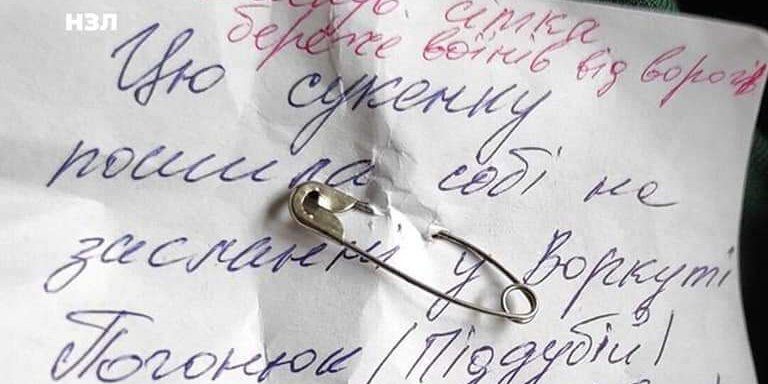 НЗЛ
сітка
береже воїнів від ворогів
Цю сукенку
пошила собі на
засланні у Воркуті
Погонюк (Піддубій)